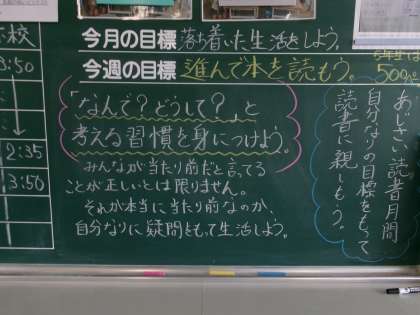 校
3:50
2:35
3:50
今月の目標 落ち着いた生活をしよう。
今週の目標 進んで本を読もう。
「なんで？どうして？」と
考える習慣を身につけよう。
みんなが当たり前だと言ってる
ことが正しいとは限りません。
それが本当に当たり前なのか、
自分なりに疑問をもって生活しよう。
あじさい読書月間
自分なりの目標をもって、
読書に親しもう。